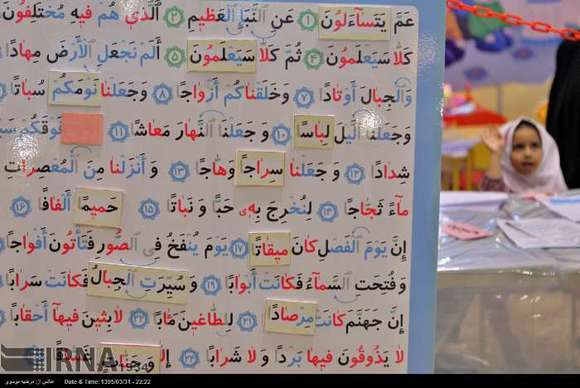 عَمَّ يَتَسَآءَلُونَ ۱ عَنِ النَّبَإِ الْعَظِيمِ ۲ اَلَّذِي هُمْ فِيهِ مُخْتَلِفُونَ
كَلَّا سَيَعْلَمُونَ ۴ ثُمَّ كَلَّا سَيَعْلَمُونَ ۵ أَلَمْ نَجْعَلِ الْأَرْضَ مِهَادًا
وَالْجِبَالَ أَوْتَادًا ۷ وَخَلَقْنَاكُمْ أَزْوَاجًا ۸ وَجَعَلْنَا نَوْمَكُمْ سُبَاتًا
وَجَعَلْنَا الَّيْلَ لِبَاسًا ۱۰ وَ جَعَلْنَا النَّهَارَ مَعَاشًا ۱۱ فَوْقَكُمْ
شِدَادًا ۱۲ وَ جَعَلْنَا سِرَاجًا وَهَّاجًا ۱۳ وَ أَنْزَلْنَا مِنَ الْمُعْصِرَاتِ
مَآءً ثَجَّاجًا ۱۴ لِنُخْرِجَ بِهِ حَبًّا وَ نَبَاتًا ۱۵ حَمِيمًا أَلْفَافًا ۱۶
إِنَّ يَوْمَ الْفَصْلِ كَانَ مِيقَاتًا ۱۷ يَوْمَ يُنْفَخُ فِي الصُّورِ فَتَأْتُونَ أَفْوَاجًا
وَ فُتِحَتِ السَّمَآءُ فَكَانَتْ أَبْوَابًا ۱۹ وَ سُيِّرَتِ الْجِبَالُ فَكَانَتْ سَرَابًا
إِنَّ جَهَنَّمَ كَانَتْ مِرْصَادًا ۲۱ لِلطَّاغِينَ مَآبًا ۲۲ لَابِثِينَ فِيهَآ أَحْقَابًا
لَا يَذُوقُونَ فِيهَا بَرْدًا وَ لَا شَرَابًا ۲۴ وَ جَنَّاتٍ
IRNA
عکس از: مرضیه موسوی Date & Time: 1395/03/31 - 22:22